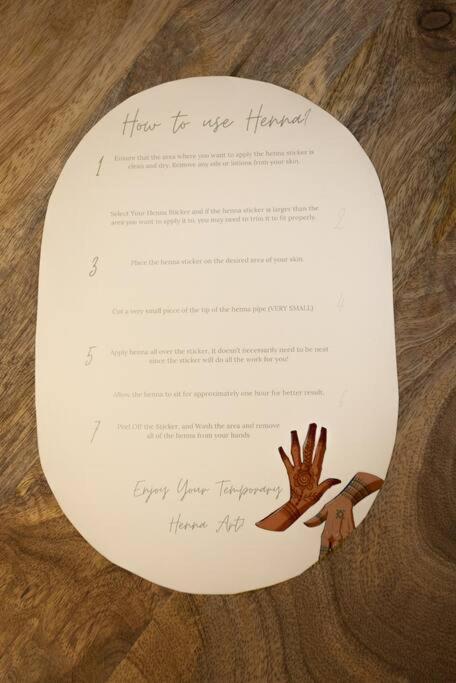 How to use Henna?
1
Ensure that the area where you want to apply the henna sticker is
clean and dry. Remove any oils or lotions from your skin.
Select Your Henna Sticker and if the henna sticker is larger than the
area you want to apply it to, you may need to trim it to fit properly.
2
3
Place the henna sticker on the desired area of your skin.
Cut a very small piece of the tip of the henna pipe (VERY SMALL)
4
5
Apply henna all over the sticker, it doesn't necessarily need to be neat
since the sticker will do all the work for you!
Allow the henna to sit for approximately one hour for better result.
6
7
Peel Off the Sticker, and Wash the area and remove
all of the henna from your hands
Enjoy Your Temporary
Henna Art!